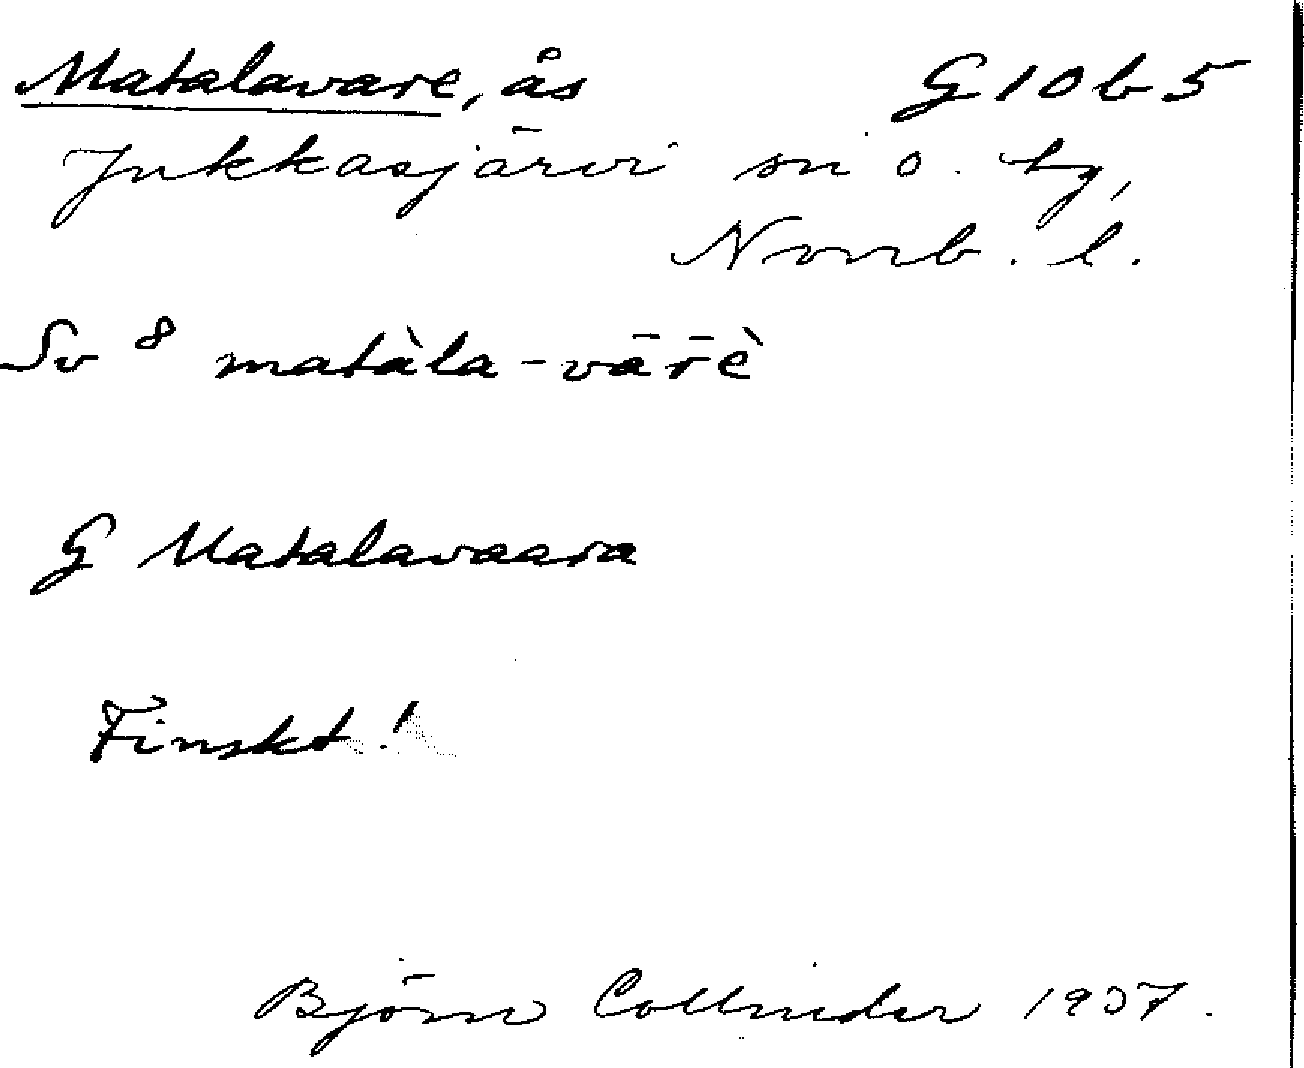 Matalavare, ås G 10 b 5
Jukkasjärvi sn o. tg,
Norrb. l.
Sv 8 matàla-vār̄è
G Matalavaara
Finskt!
Björn Collinder 1937.